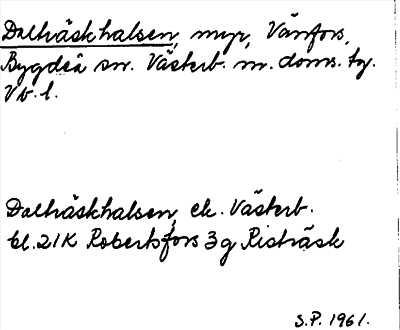 Dalträskhalsen, myr, Vänfors,
Bygdeå sn. Västerb. m. doms. tg.
Vb. l.
Dalträskhalsen, ek. Västerb.
bl. 21K Robertsfors 3g Risträsk
S.P. 1961.